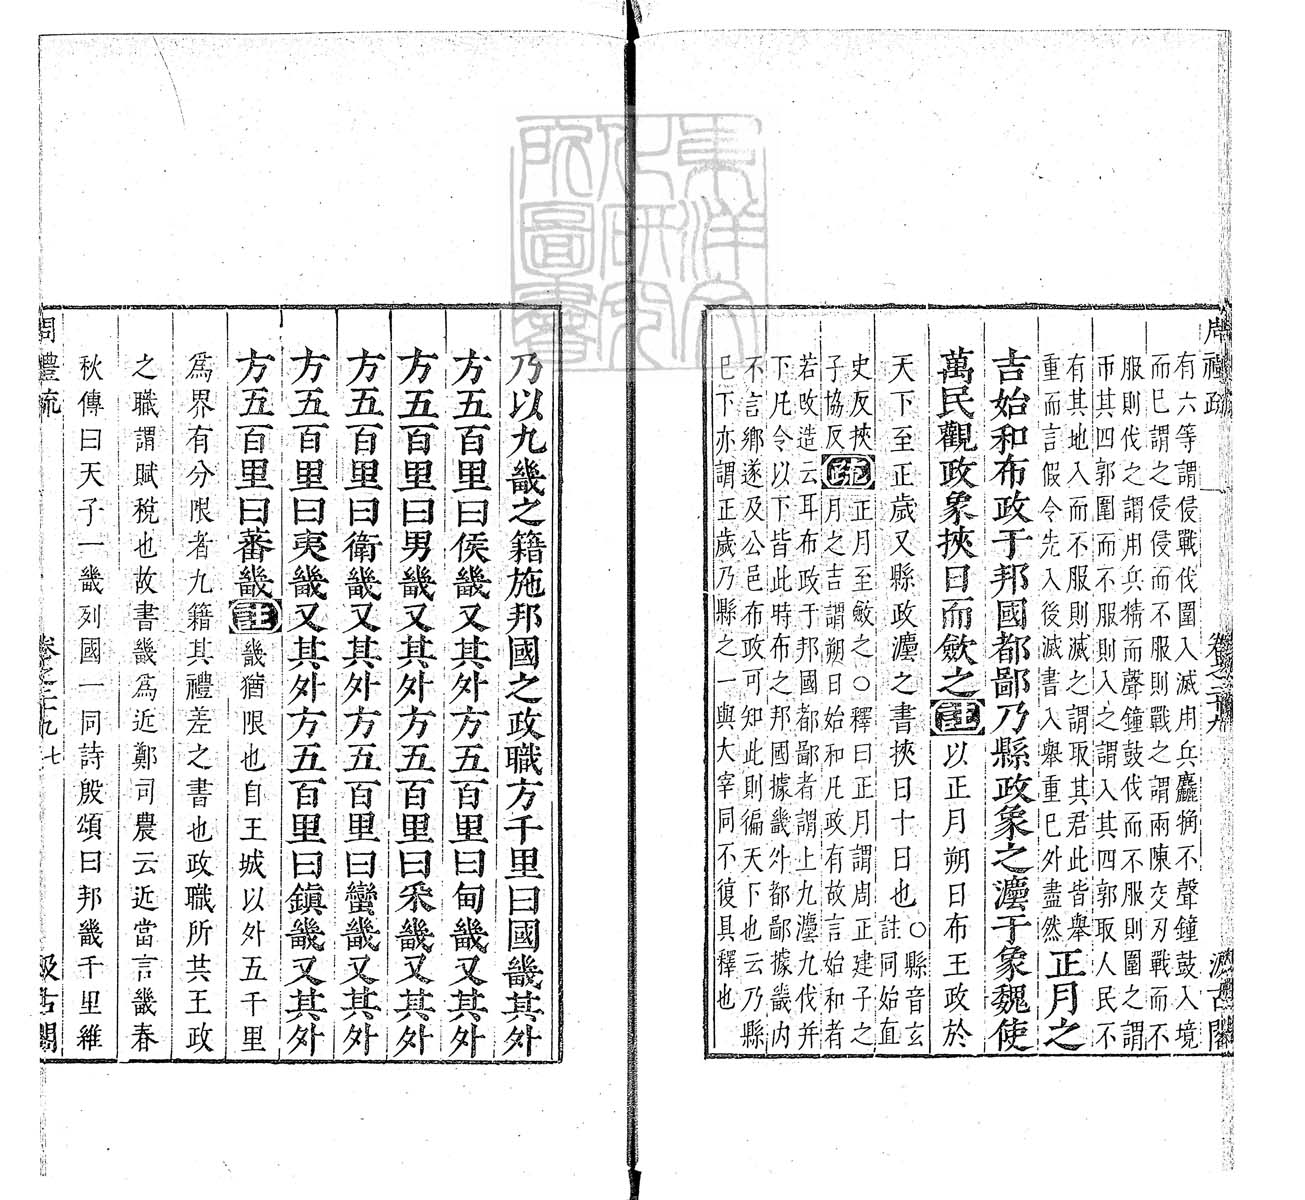 周禮疏 卷之二十九 汲古閣
有六等謂侵戰伐圍入滅用兵麤觕不聲鐘鼓入境
而已謂之侵侵而不服則戰之謂兩陳交刃戰而不
服則伐之謂用兵精而聲鐘鼓伐而不服則圍之謂
帀其四郭圍而不服則入之謂入其四郭取人民不
有其地入而不服則滅之謂取其君此皆舉
重而言假令先入後滅書入舉重已外盡然
正月之
吉始和布政于邦國都鄙乃縣政象之灋于象魏使
萬民觀政象挾日而斂之註以正月朔日布王政於
天下至正歲又縣政灋之書挾日十日也
○縣音玄
註同始直
史反挾
子協反
疏
正月至斂之○釋曰正月謂周正建子之
月之吉謂朔日始和凡政有故言始和者
若改造云耳布政于邦國都鄙者謂上九灋九伐并
下凡令以下皆此時布之邦國據畿外都鄙據畿内
不言鄉遂及公邑布政可知此則徧天下也云乃縣
已下亦謂正歲乃縣之一與大宰同不復具釋也
乃以九畿之籍施邦國之政職方千里曰國畿其外
方五百里曰侯畿又其外方五百里曰甸畿又其外
方五百里曰男畿又其外方五百里曰采畿又其外
方五百里曰衛畿又其外方五百里曰蠻畿又其外
方五百里曰夷畿又其外方五百里曰鎮畿又其外
方五百里曰蕃畿註畿猶限也自王城以外五千里
爲界有分限者九籍其禮差之書也政職所共王政
之職謂賦稅也故書畿爲近鄭司農云近當言畿春
秋傳曰天子一畿列國一同詩殷頌曰邦畿千里維
周禮疏 卷之二十九 七 汲古閣